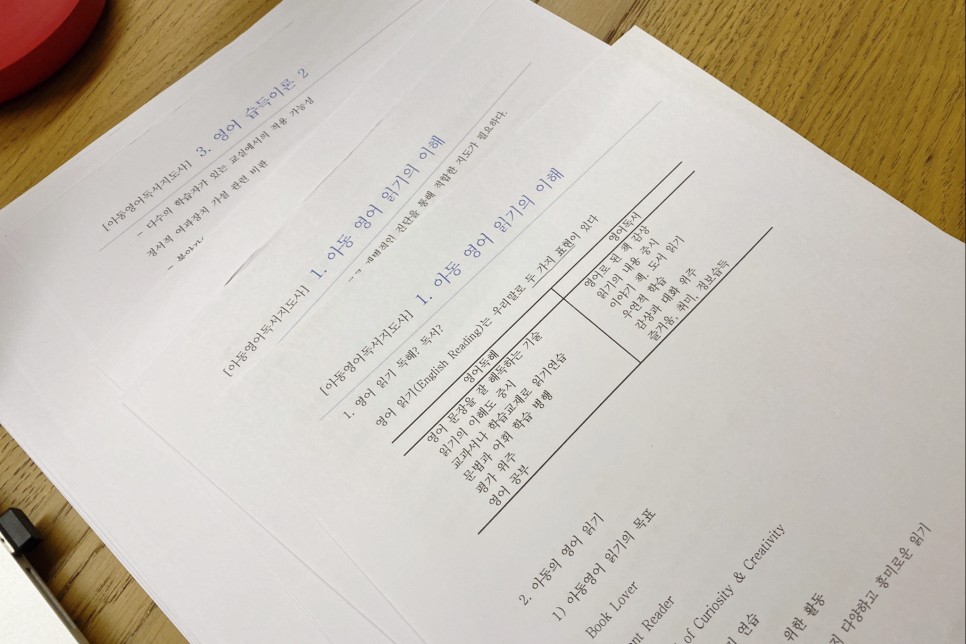 [아동영어독서지도사] 3. 영어 습득이론 2
- 다수의 학습자가 있는 교실에서의 적용 가능성
정서적 여과장치 가설 관련 비판
[아동영어독서지도사] 1. 아동 영어 읽기의 이해
진단을 통해 적합한 지도가 필요하다.
[아동영어독서지도사] 1. 아동 영어 읽기의 이해
1. 영어 읽기 독해? 독서?
영어 읽기(English Reading)는 우리말로 두 가지 표현이 있다
영어독해
영어 문장을 잘 해독하는 기술
읽기의 이해도 중시
교과서나 학습교재로 읽기연습
문법과 어휘 학습 병행
평가 위주
영어 공부
영어독서
영어로 된 책 감상
읽기의 내용 중시
이야기 책, 도서 읽기
우연적 학습
감상과 대화 위주
즐거움, 취미, 정보습득
2. 아동의 영어 읽기
1) 아동영어 읽기의 목표
Book Lover
Reader
of Curiosity & Creativity
연습
위한 활동
다양하고 흥미로운 읽기